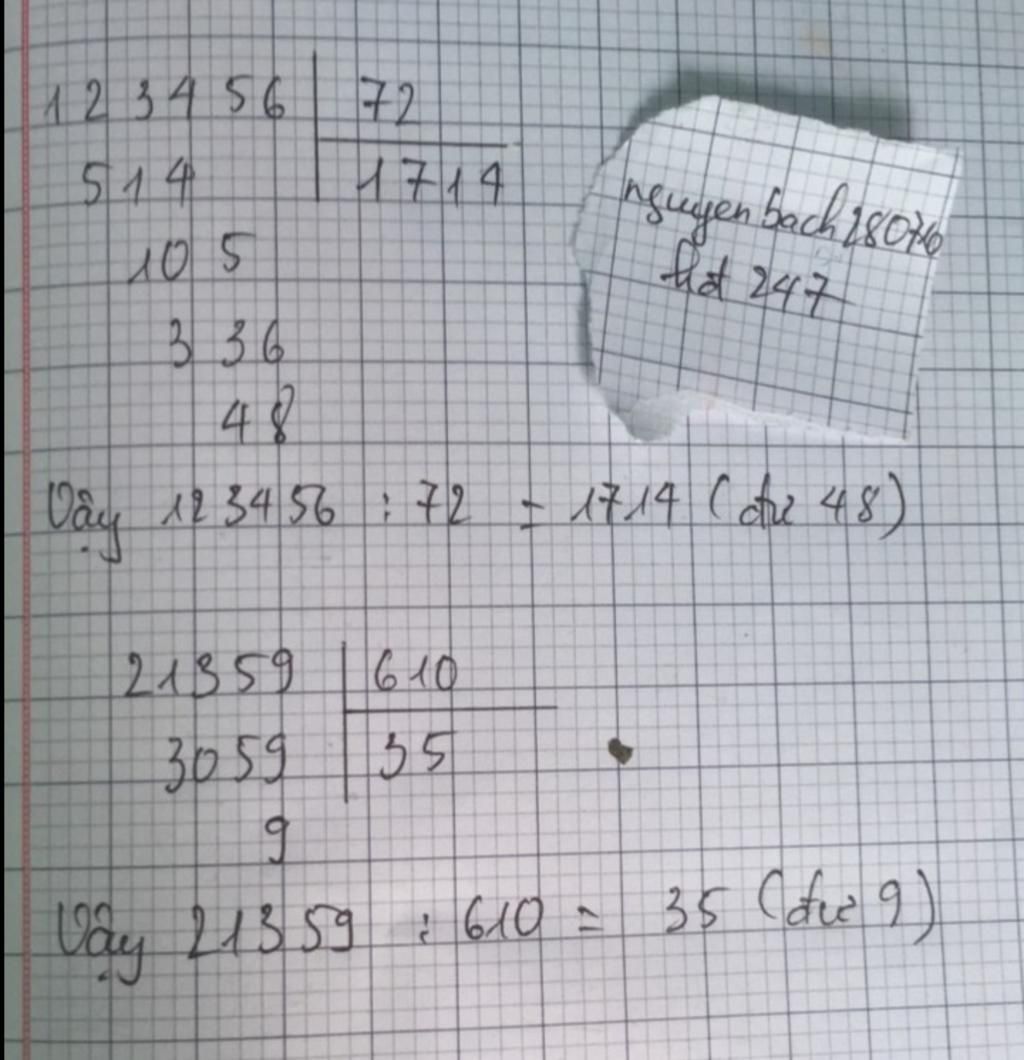 123456 72
514 1714
105
336
48
Vậy 123456 : 72 = 1714 (dư 48)
21359 610
3059 35
9
Vậy 21359 : 610 = 35 (dư 9)
nguyen bach
247